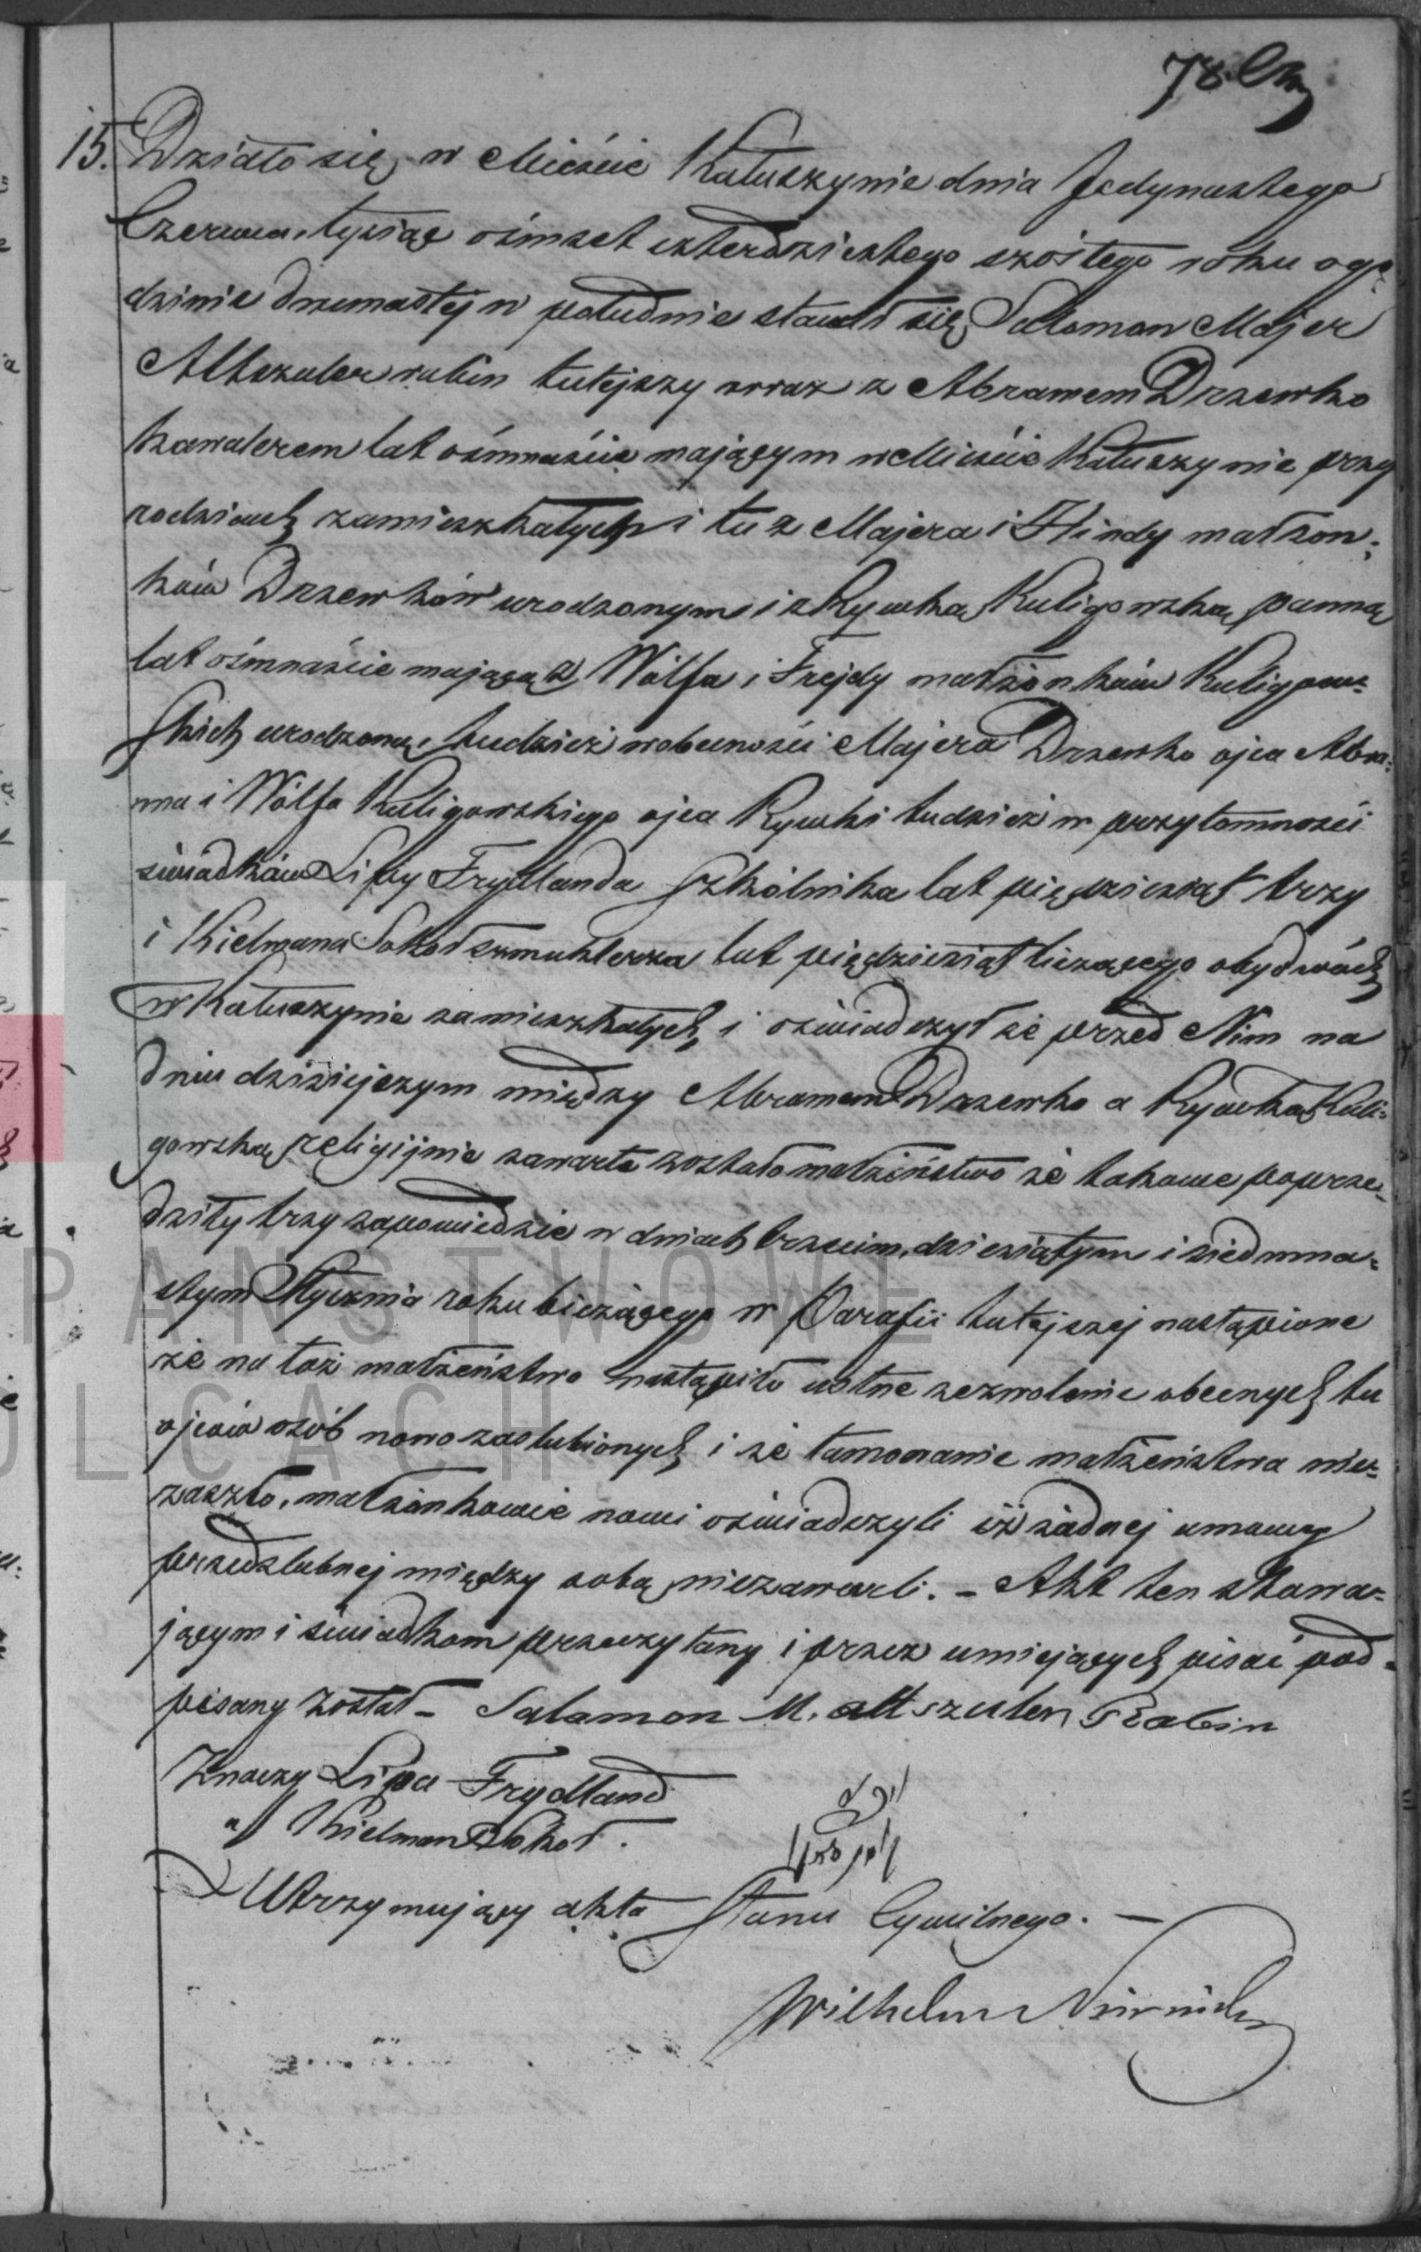 78
15. Działo się w Mieście Kałuszynie dnia Jedynastego
Czerwca, tysiąc ośmset czterdziestego szóstego roku ogo=
dzinie dwunastej w południe stawił się Salomon Majer
Altszuler rabin tutejszy wraz z Abramem Drzewko
kawalerem lat ośmnaście mającym w Mieście Kałuszynie przy
rodzicach zamieszkałych i tu z Majera i Hindy małżon=
ków Drzewków urodzonym i z Rywką Kuligowską panną
lat ośmnaście mającą z Wolfa i Frejdy małżonków Kuligow=
skich urodzoną, tudzież w obecności Majera Drzewko ojca Abra=
ma i Wolfa Kuligowskiego ojca Rywki tudzież w przytomności
świadków Lipy Frydlanda Szkólnika lat pięędziesiąt trzy
i Kielmana Sokoł szmuklerza lat pięędziesiąt liczącego obydwóch
w Kałuszynie zamieszkałych, i oświadczył że przed Nim na
dniu dzisiejszym między Abramem Drzewko a Rywką Kuli=
gowską religijnie zawarte zostało małżeństwo że takowe poprze=
dziły trzy zapowiedzie w dniach trzecim, dziesiątym i siedmna=
stym Stycznia roku bieżącego w Parafii tutejszej nastąpione
że na toż małżeństwo nastąpiło ustne zezwolenie obecnych tu
ojców osób nowozaślubionych i że tamowanie małżeństwa nie=
zaszło, małżonkowie nowi oświadczyli iż żadnej umowy
przedślubnej między sobą niezawarli. – Akt ten stawa=
jącym i świadkom przeczytany i przez umiejących pisać pod=
pisany został – Salamon M. Altszuler Rabin
Znaczy Lipa Frydland
" Kielman Sokoł.
Utrzymujący akta Stanu Cywilnego. –
Wilhelm
PAŃSTWOWE
LCACH